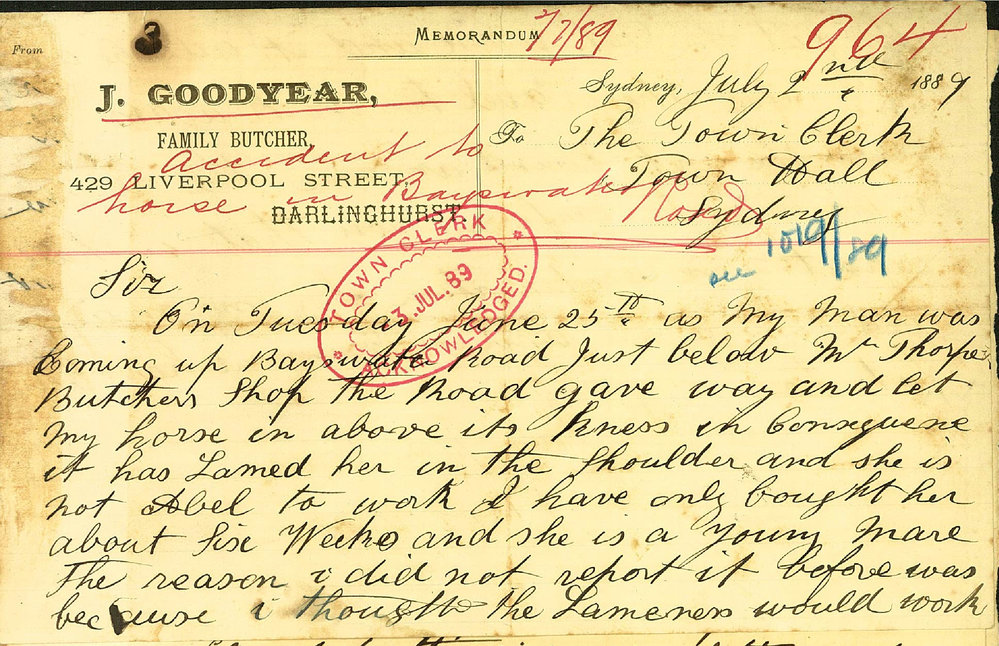 MEMORANDUM
2/7/89
964
From
J. GOODYEAR,
FAMILY BUTCHER,
429 LIVERPOOL STREET,
DARLINGHURST.
Accident to
horse in Bayswater Road
Sydney, July 2nd 1889
To The Town Clerk
Town Hall
Sydney
see 1019/89
TOWN CLERK
3 JUL. 89
ACKNOWLEDGED.
Sir
On Tuesday June 25th as My Man was
Coming up Bayswater Road Just below Mr Thorpes
Butchers Shop the Road gave way and let
my horse in above its Kness in Consequene
it has Lamed her in the Shoulder and she is
not Abel to work I have only bought her
about Six Weeks and she is a Young Mare
The reason i did not report it before was
because i thought the Lameness would work